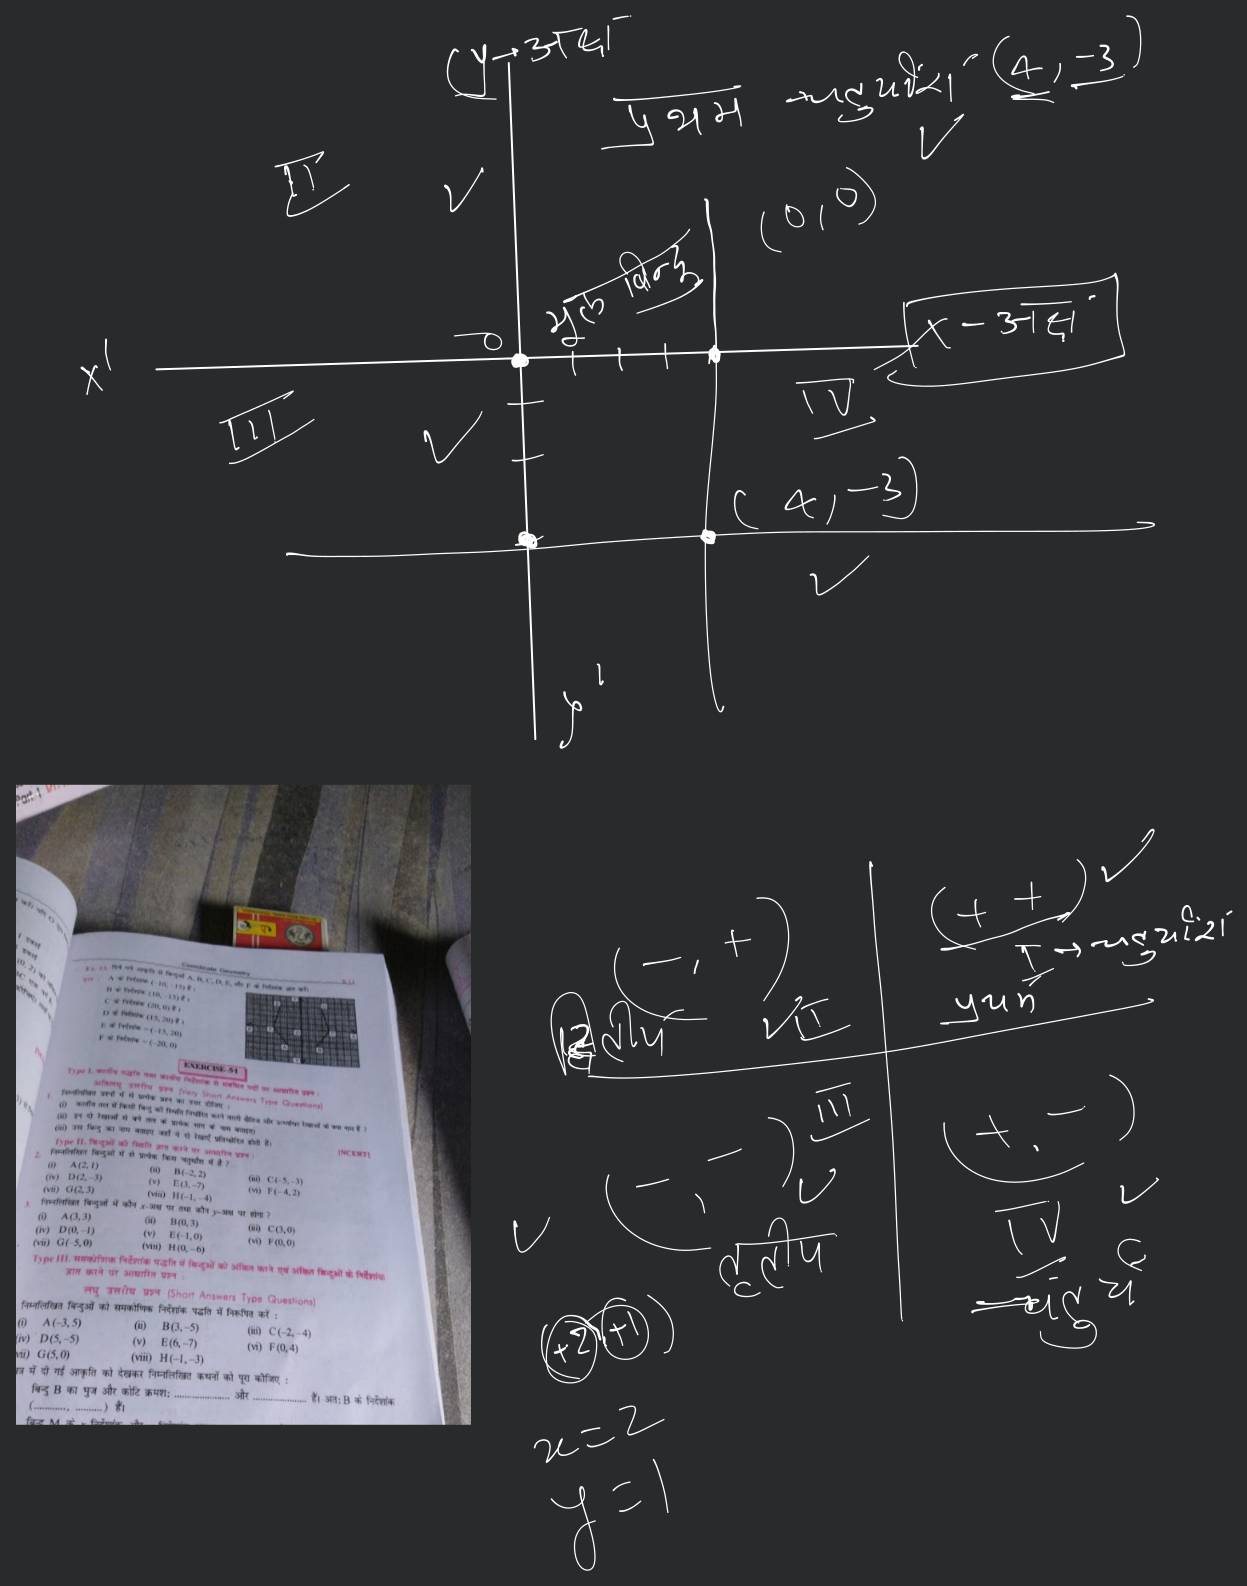 y → अक्ष
प्रथम चतुर्थांश (4, -3)
II
(0,0)
मूल बिन्दु
0
x - अक्ष
x'
III
IV
(4, -3)
y'
(+ +)
I → चतुर्थांश
प्रथम
(-, +)
द्वितीय II
(-, -) III
तृतीय
(+, -)
IV
चतुर्थ
(+2, +1)
x = 2
y = 1
Coordinate Geometry
A के निर्देशांक (-10, -15) हैं।
B के निर्देशांक (10, -15) हैं।
C के निर्देशांक (20, 0) हैं।
D के निर्देशांक (15, 20) हैं।
E के निर्देशांक = (-15, 20)
F के निर्देशांक = (-20, 0)
EXERCISE-51
अतिलघु उत्तरीय प्रश्न (Very Short Answers Type Questions)
1. निम्नलिखित प्रश्नों में से प्रत्येक प्रश्न का उत्तर दीजिए :
Type II. बिन्दुओं की स्थिति ज्ञात करने पर आधारित प्रश्न :
2. निम्नलिखित बिन्दुओं में से प्रत्येक किस चतुर्थांश में है ? [NCERT]
(i) A(2, 1) (ii) B(-2, 2) (iii) C(-5, -3)
(iv) D(2, -3) (v) E(3, -7) (vi) F(-4, 2)
(vii) G(2, 3) (viii) H(-1, -4)
3. निम्नलिखित बिन्दुओं में कौन x-अक्ष पर तथा कौन y-अक्ष पर होगा ?
(i) A(3, 3) (ii) B(0, 3) (iii) C(3, 0)
(iv) D(0, -1) (v) E(-1, 0) (vi) F(0, 0)
(vii) G(-5, 0) (viii) H(0, -6)
Type III. समकोणिक निर्देशांक पद्धति में बिन्दुओं को अंकित करने एवं अंकित बिन्दुओं के निर्देशांक
ज्ञात करने पर आधारित प्रश्न :
लघु उत्तरीय प्रश्न (Short Answers Type Questions)
निम्नलिखित बिन्दुओं को समकोणिक निर्देशांक पद्धति में निरूपित करें :
(i) A(-3, 5) (ii) B(3, -5) (iii) C(-2, -4)
(iv) D(5, -5) (v) E(6, -7) (vi) F(0, 4)
(vii) G(5, 0) (viii) H(-1, -3)
में दी गई आकृति को देखकर निम्नलिखित कथनों को पूरा कीजिए :
बिन्दु B का भुज और कोटि क्रमश: .................... और .................... हैं। अत: B के निर्देशांक
(............, ..........) हैं।